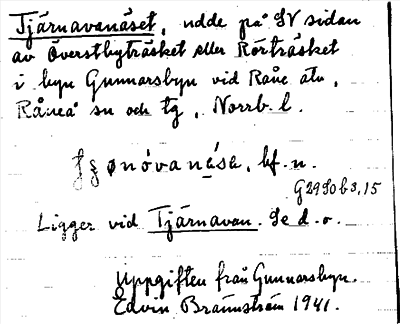 Tjärnavanäset, udde på SV sidan
av Överstbyträsket eller Rörträsket
i byn Gunnarsbyn vid Råne älv,
Råneå sn och tg, Norrb. l.
nóvanäse, bf. n.
G2950b3,15
Ligger vid Tjärnavan. Se d. o.
Uppgiften från Gunnarsbyn.
Edvin Brännström 1941.